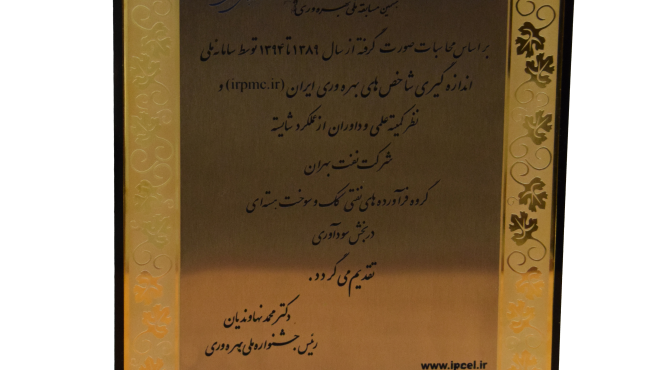 بر اساس محاسبات صورت گرفته از سال ۱۳۸۹ تا ۱۳۹۴ توسط سامانه ملی
اندازه گیری شاخص های بهره وری ایران (irpmc.ir) و
نظر کمیته علمی و داوران از عملکرد شایسته
شرکت نفت بهران
گروه فرآورده های نفتی کک و سوخت هسته ای
در بخش سودآوری
تقدیم می گردد.
دکتر محمد نهاوندیان
رئیس جشنواره ملی بهره وری
www.ipcel.ir